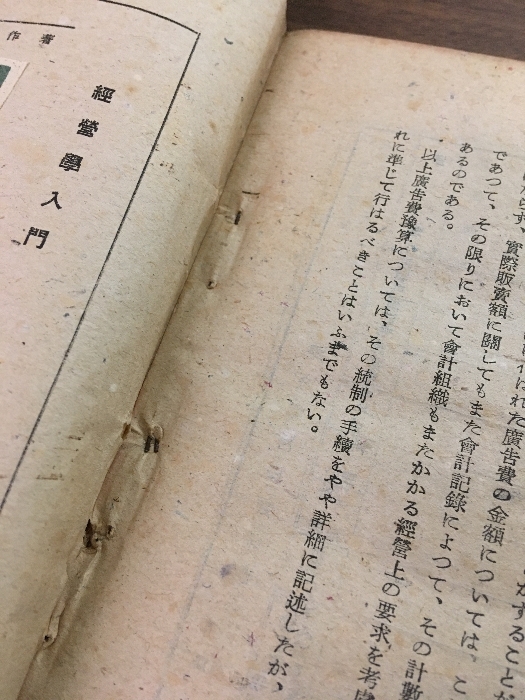 けられた廣告費の金額については、こ
であつて、實際販賣額に關してもまた會計記錄によつて、その計數
あるのである。その限りにおいて會計組織もまたかかる經營上の要求を考慮
以上廣告費豫算については、その統制の手續をやや詳細に記述したが、
れに準じて行はるべきことはいふまでもない。
著作
經營學入門